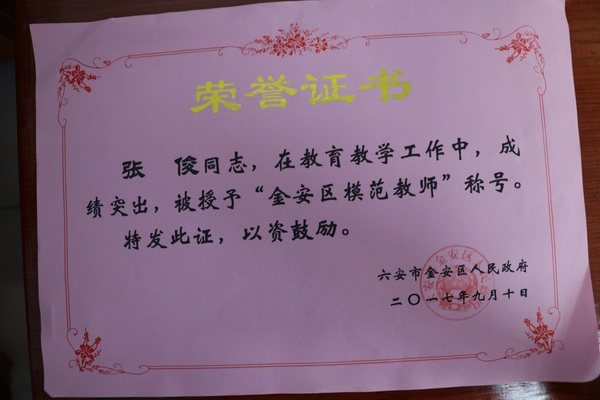 荣誉证书
张 俊同志，在教育教学工作中，成
绩突出，被授予“金安区模范教师”称号。
特发此证，以资鼓励。
六安市金安区人民政府
二〇一七年九月十日